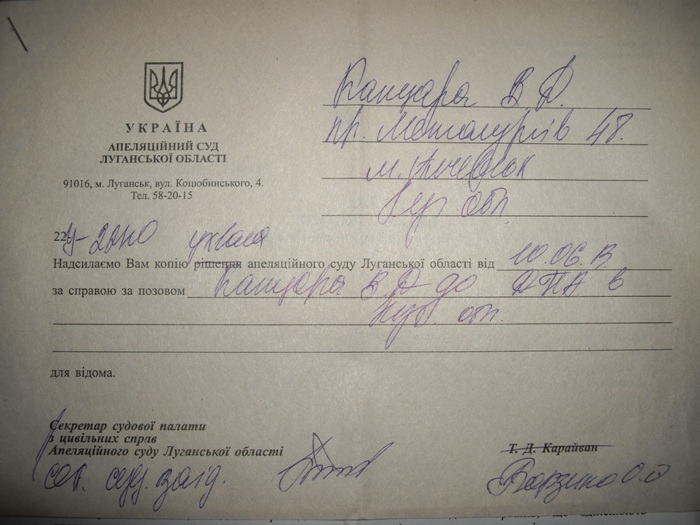 Кащара В Д.
пр. Металургів 48.
м. Алчевськ
Луг. обл.
УКРАЇНА
АПЕЛЯЦІЙНИЙ СУД
ЛУГАНСЬКОЇ ОБЛАСТІ
91016, м. Луганськ, вул. Коцюбинського, 4.
Тел. 58-20-15
22ц-2010 ухвала
Надсилаємо Вам копію рішення апеляційного суду Луганської області від 10.06.
за справою за позовом Кащара В Д до ДПА в
Луг. обл.
для відома.
Секретар судової палати
з цивільних справ
Апеляційного суду Луганської області
Т. Д. Карайван
сек. суд. засід.